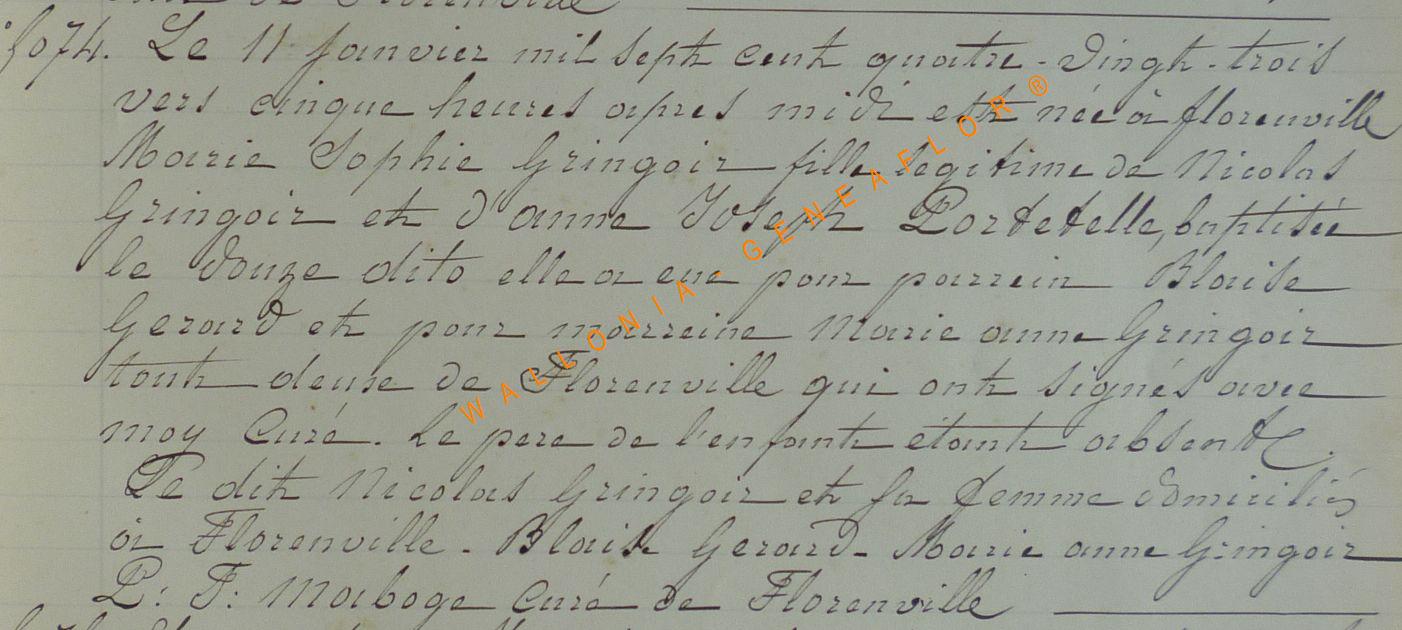 de Florenville
fo 74. Le 11 janvier mil sept cent quatre-vingt-trois
vers cinque heures apres midi est née à florenville
Marie Sophie Gringoir fille legitime de Nicolas
Gringoir et d'anne Joseph Portetelle, baptisée
le douze dito elle a eue pour parrein Blaise
Gerard et pour marreine Marie anne Gringoir
tout deuxe de Florenville qui ont signés avec
moy Curé. Le pere de l'enfant étant absent
Le dit Nicolas Gringoir et sa femme domiciliés
à Florenville. Blaise Gerard. Marie anne Gringoir
P: F: Maboge Curé de Florenville
WALLONIA - GENEAFLOR ®